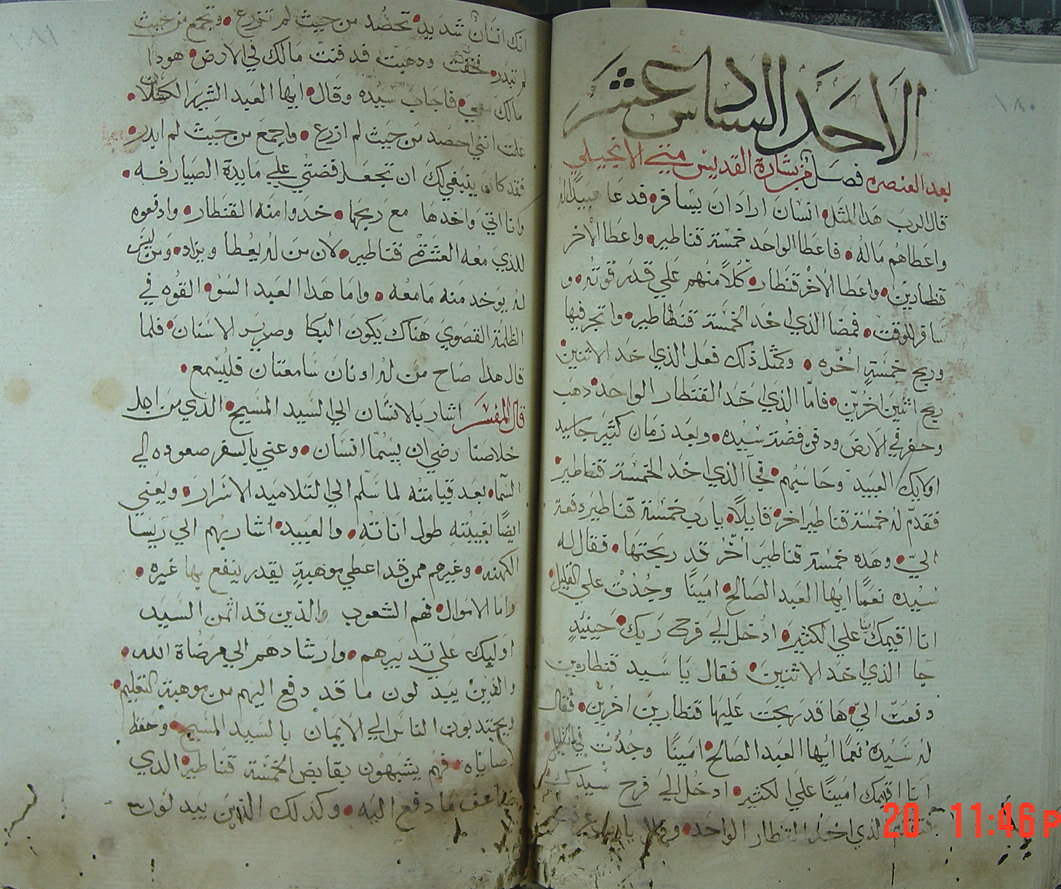 ١٨٠
الاحد السادس عشر
بعد العنصره فصل من بشارة القديس متي الانجيلي
قال الرب هذا المثل انسان اراد ان يسافر فدعا عبيده
واعطاهم ماله فاعطا الواحد خمسة قناطير واعطا الاخر
قنطارين واعطا الاخر قنطار كلا منهم علي قدر قوته و
سافر للوقت فمضا الذي اخد الخمسة قناطير واتجر فيها
وربح خمسة اخره وكمثل ذلك فعل الذي اخد الاثنين
ربح اثنين اخرين فاما الذي اخد القنطار الواحد دهب
وحفر في الارض ودفن فضة سيده وبعد زمان كثير جا سيد
اوليك العبيد وحاسبهم فجا الذي اخد الخمسة قناطير
فقدم له خمسة قناطير اخر قايلا يارب خمسة قناطير دفعة
الي وهده خمسة قناطير اخر قد ربحتها فقال له
سيده نعما ايها العبد الصالح امينا وجدت علي القليل
انا اقيمك امينا علي الكثير ادخل الي فرح ربك حينيد
جا الذي اخد الاثنين فقال يا سيد قنطارين
دفعت الي ها قد ربحت عليها قنطارين اخرين فقال
له سيده نعما ايها العبد الصالح امينا وجدت في القليل
انا اقيمك امينا علي الكثير ادخل الي فرح سيدك
الذي اخد القنطار الواحد وقال يارب
١٨١
انك انسان شديد تحصد من حيث لم تزرع وتجمع من حيث
لم تبدر فخفت ودهبت فدفنت مالك في الارض هودا
مالك فاجاب سيده وقال ايها العبد الشرير الكسلان
علمت انني احصد من حيث لم ازرع واجمع من حيث لم ابدر
فقد كان ينبغي لك ان تجعل فضتي علي مايدة الصيارفه
وانا اتي واخدها مع ربحها خدوا منه القنطار وادفعوه
للذي معه العشرة قناطير لان من له يعطا ويزاد ومن ليس
له يوخد منه ما معه واما هدا العبد السو القوه في
الظلمة القصوي هناك يكون البكا وصرير الاسنان فلما
قال هدا صاح من له ادنان سامعتان فليسمع
قال المفسر اشار بالانسان الي السيد المسيح الذي من اجل
خلاصنا رضي ان يسما انسان وعني بالسفر صعوده الي
السما بعد قيامته لما سلم الي التلاميد الاسرار ويعني
ايضا بغيبته طول اناته والعبيد اشار بهم الي ريسا
الكهنه وغيرهم ممن قد اعطي موهبة يقدر ينفع بها غيره
واما الاموال فهم الشعوب والدين قد اتمن السيد
اوليك علي تدبيرهم وارشادهم الي مرضاة الله
والذين يبدلون ما قد دفع اليهم من موهبة التعليم
ويجتدبون الناس الي الايمان بالسيد المسيح وحفظ
وصاياه فهم يشبهون بقابض الخمسة قناطير الدي
ما دفع اليه وكدلك الدين يبدلون
20 11:46 P